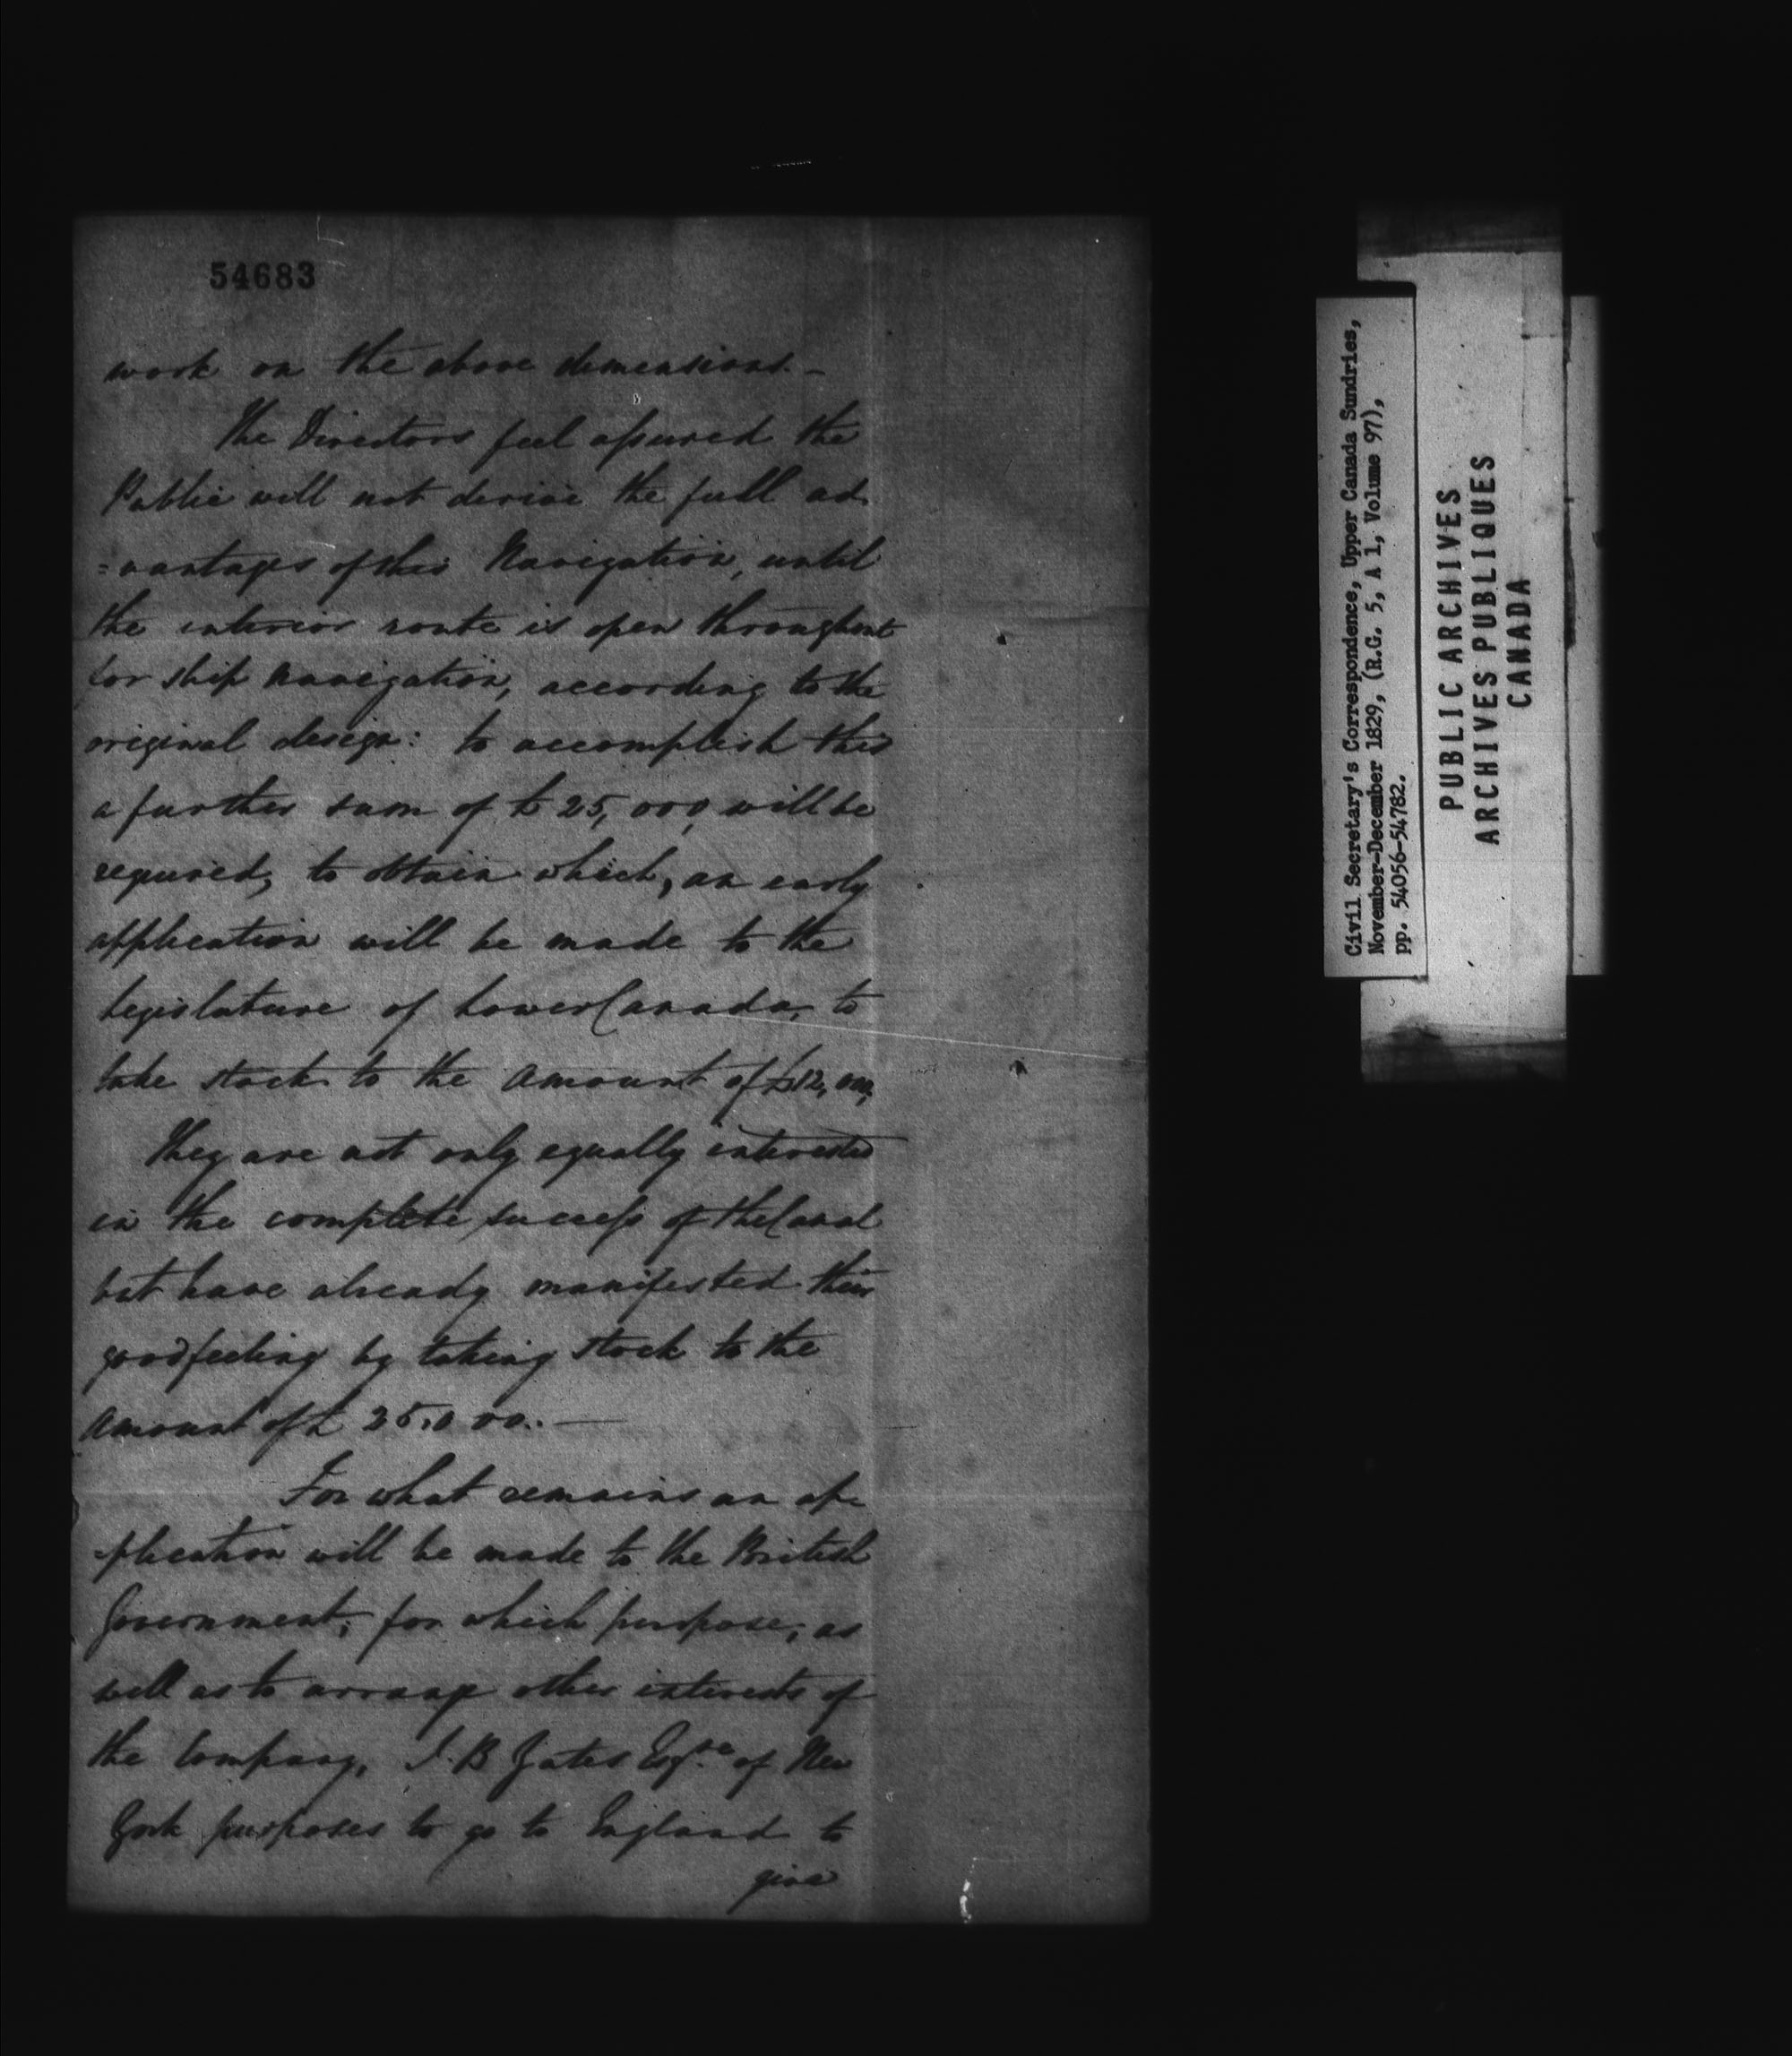 54683
work on the above dimensions.-
The Directors feel assured the
Public will not derive the full ad-
=vantages of this Navigation, until
the interior route is open throughout
for ship navigation, according to the
original design: to accomplish this
a further sum of £25,000, will be
required, to obtain which, an early
application will be made to the
Legislature of Lower Canada, to
take stock to the amount of £12,000,
They are not only equally interested
in the complete success of the Canal
but have already manifested their
good feeling by taking stock to the
amount of £25,000.—
For what remains an ap-
=plication will be made to the British
Government, for which purpose, as
well as to arrange other interests of
the Company, J.B Yates Esqre of New
York purposes to go to England to
give
Civil Secretary's Correspondence, Upper Canada Sundries,
November-December 1829, (R.G. 5, A 1, Volume 97),
pp. 54056-54782.
PUBLIC ARCHIVES
ARCHIVES PUBLIQUES
CANADA